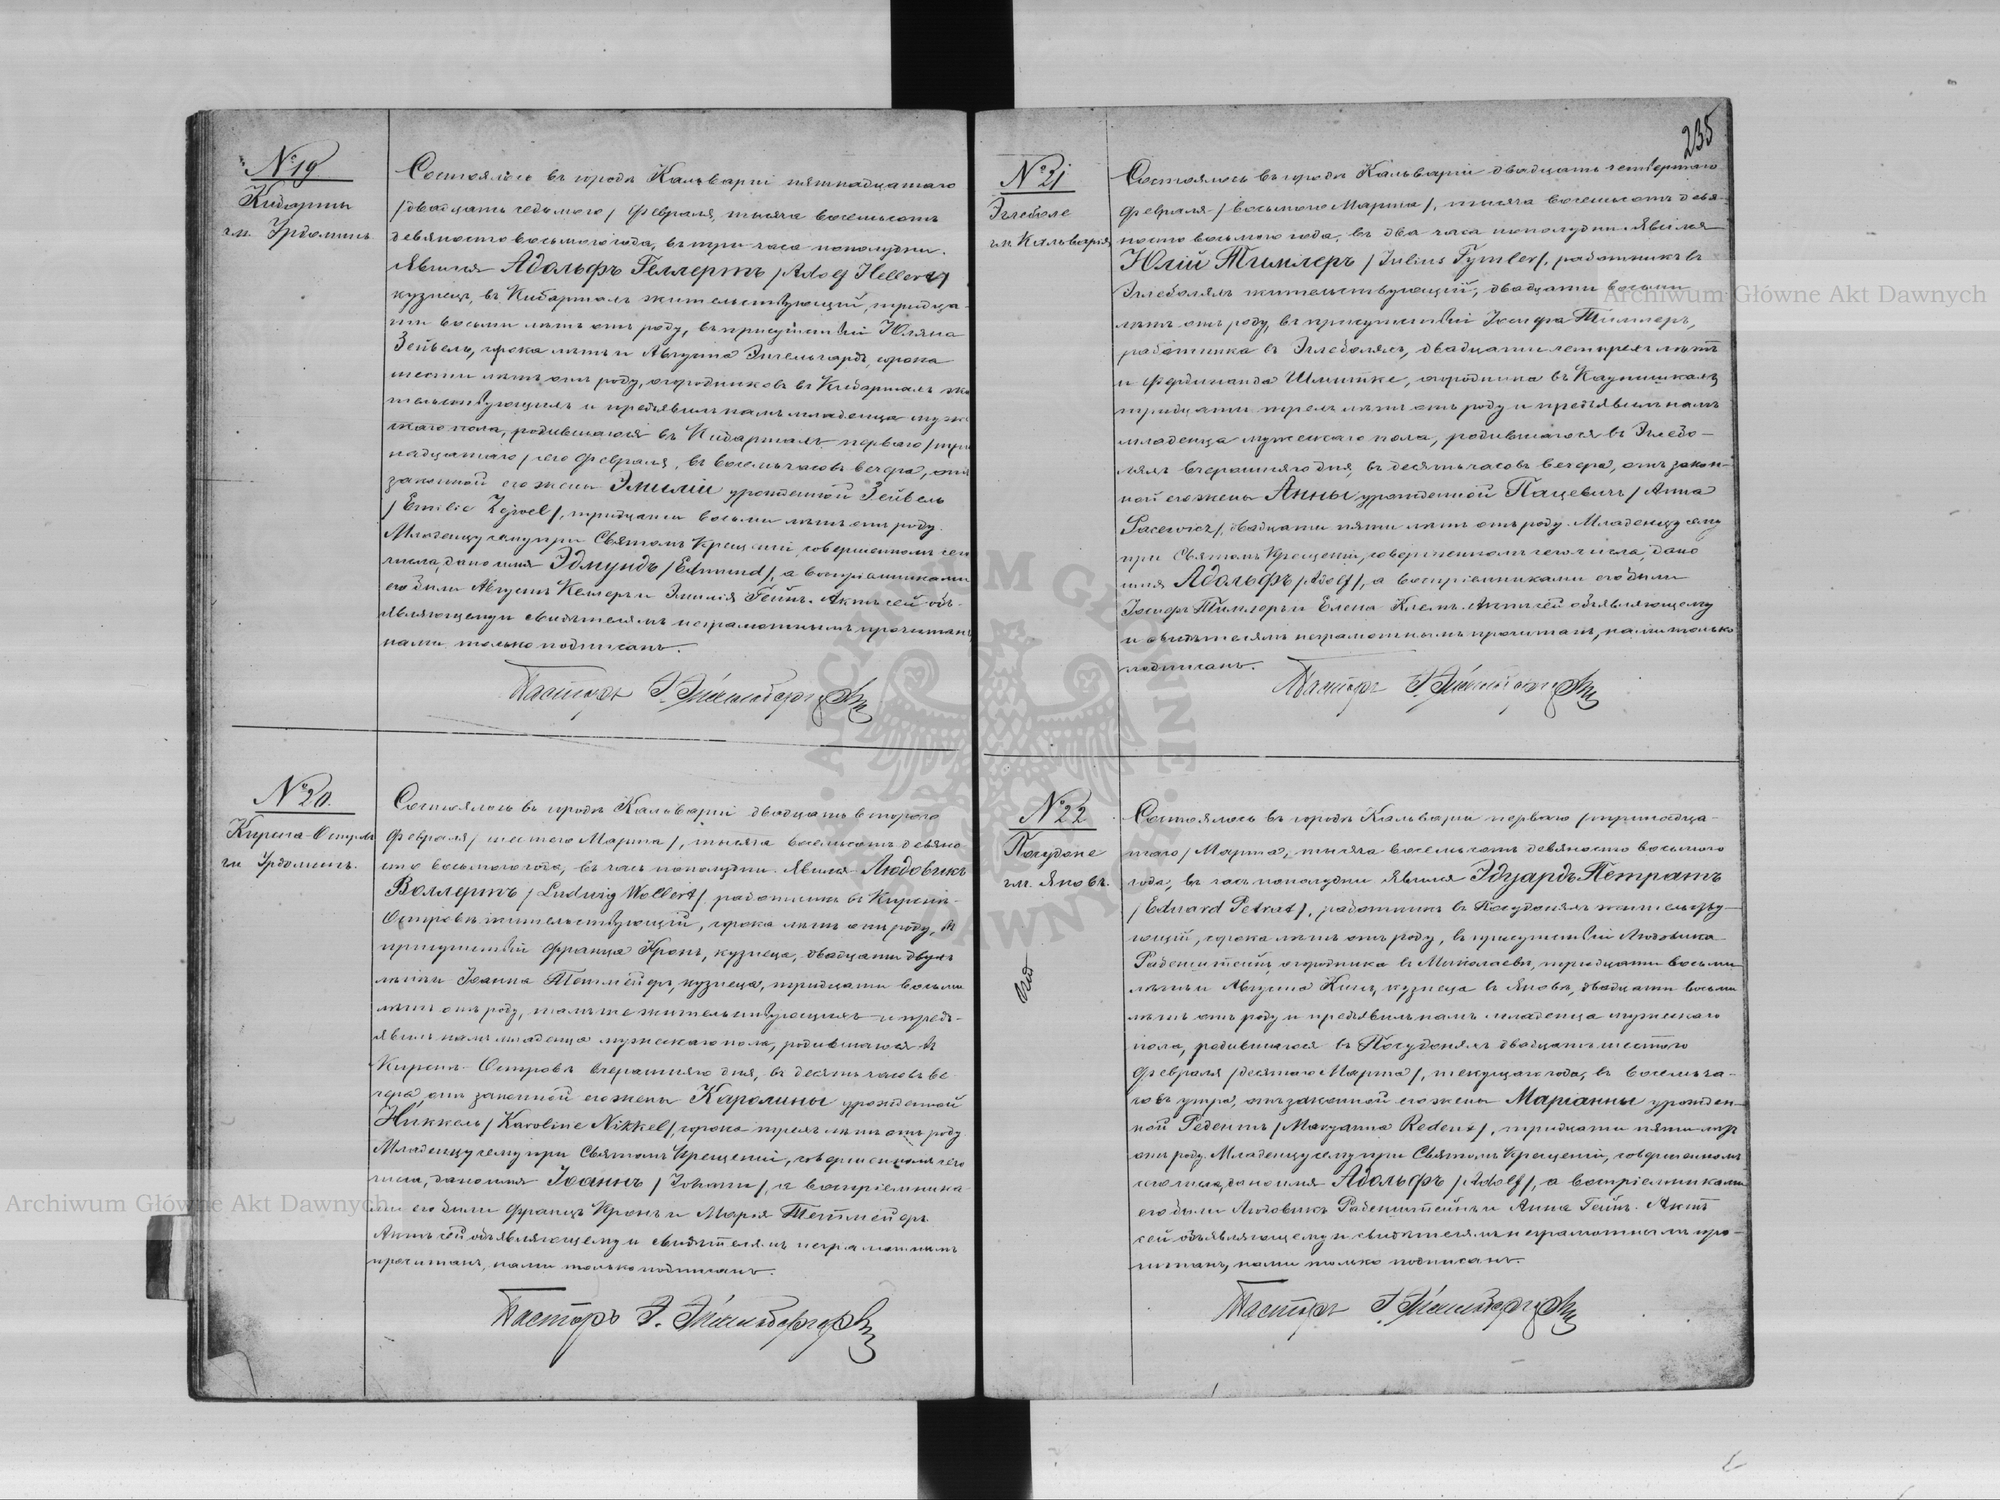 № 19
Кибарты
гм. Урдоминъ
Состоялось въ городѣ Кальваріи пятнадцатаго
/двадцать седьмого/ февраля, тысяча восемьсотъ
девяносто восьмого года, въ три часа пополудни.
Явился Адольфъ Геллертъ /Adolf Hellert/
кузнецъ, въ Кибартахъ жительствующій, тридца-
ти восьми лѣтъ отъ роду, въ присутствіи Юліяна
Зейбель, сорока лѣтъ и Августа Энгельгардъ, сорока
шести лѣтъ отъ роду, огородниковъ въ Кибартахъ жи
тельствующихъ и предъявилъ намъ младенца муже
скаго пола, родившагося въ Кибартахъ перваго /три
надцатаго/ сего февраля, въ восемь часовъ вечера, отъ
законной его жены Эмиліи урожденной Зейбель
/Emilie Zejbel/, тридцати восьми лѣтъ отъ роду.
Младенцу сему при Святомъ Крещеніи, совершенномъ сего
числа, дано имя Эдмундъ /Edmund/, а воспріемниками
его были Августъ Келеръ и Эмилія Гейнъ. Актъ сей объ-
являющему и свидѣтелямъ неграмотнымъ прочитанъ
нами только подписанъ.
Пасторъ
№ 20.
Кирсна-Островъ
гм. Урдоминъ.
Состоялось въ городѣ Кальваріи двадцать второго
февраля /шестого Марта/, тысяча восемьсотъ девяно
сто восьмого года, въ часъ пополудни. Явился Людовикъ
Воллертъ /Ludwig Wollert/, работникъ въ Кирснѣ-
Островѣ жительствующій, сорока лѣтъ отъ роду, въ
присутствіи Франца Кронъ, кузнеца, двадцати двухъ
лѣтъ и Іоанна Тетмейеръ, кузнеца, тридцати восьми
лѣтъ отъ роду, тамъ же жительствующихъ и предъ-
явилъ намъ младенца мужескаго пола, родившагося въ
Кирснѣ-Островѣ вчерашняго дня, въ десять часовъ ве
чера, отъ законной его жены Каролины урожденной
Никкель /Karoline Nikkel/, сорока трехъ лѣтъ отъ роду.
Младенцу сему при Святомъ Крещеніи, совершенномъ сего
числа, дано имя Іоаннъ /Johann/, а воспріемника
ми его были Францъ Кронъ и Марія Тетмейеръ.
Актъ сей объявляющему и свидѣтелямъ неграмотнымъ
прочитанъ, нами только подписанъ.
Пасторъ
235
№ 21
Эглеболе
гм. Кальварія
Состоялось въ городѣ Кальваріи двадцать четвертаго
февраля /восьмого Марта/, тысяча восемьсотъ девя-
носто восьмого года, въ два часа пополудни. Явился
Юлій Тимлеръ /Julius Tymler/, работникъ въ
Эглеболяхъ жительствующій, двадцати восьми
лѣтъ отъ роду, въ присутствіи Іосифа Тимлеръ,
работника въ Эглеболяхъ, двадцати четырехъ лѣтъ
и Фердинанда Шмитке, огородника въ
тридцати трехъ лѣтъ отъ роду и предъявилъ намъ
младенца мужескаго пола, родившагося въ Эглебо-
ляхъ вчерашняго дня, въ десять часовъ вечера, отъ закон-
ной его жены Анны урожденной Пацевичъ /Anna
Pacewicz/, двадцати пяти лѣтъ отъ роду. Младенцу сему
при Святомъ Крещеніи, совершенномъ сего числа, дано
имя Адольфъ /Adolf/, а воспріемниками его были
Іосифъ Тимлеръ и Елена Клемъ. Актъ сей объявляющему
и свидѣтелямъ неграмотнымъ прочитанъ, нами только
подписанъ.
Пасторъ
№ 22
Посудоне
гм. Яновъ.
Состоялось въ городѣ Кальваріи перваго /тринадца-
таго/ Марта, тысяча восемьсотъ девяносто восьмого
года, въ часъ пополудни Явился Эдуардъ Петратъ
/Eduard Petrat/, работникъ въ Посудоняхъ жительству-
ющій, сорока лѣтъ отъ роду, въ присутствіи Людовика
Раденштейнъ, огородника въ Миколаевѣ, тридцати восьми
лѣтъ и Августа Кинъ, кузнеца въ Яновѣ, двадцати восьми
лѣтъ отъ роду и предъявилъ намъ младенца мужескаго
пола, родившагося въ Посудоняхъ двадцать шестого
февраля /десятаго Марта/, текущаго года, въ восемь ча-
совъ утра, отъ законной его жены Маріанны урожден-
ной Редентъ /Maryanna Redent/, тридцати пяти лѣтъ
отъ роду. Младенцу сему при Святомъ Крещеніи, совершенномъ
сего числа, дано имя Адольфъ /Adolf/, а воспріемниками
его были Людовикъ Раденштейнъ и Анна Гейнъ. Актъ
сей объявляющему и свидѣтелямъ неграмотнымъ про-
читанъ, нами только подписанъ.
Пасторъ
Archiwum Główne Akt Dawnych
Archiwum Główne Akt Dawnych
ARCHIWUM GŁÓWNE AKT DAWNYCH